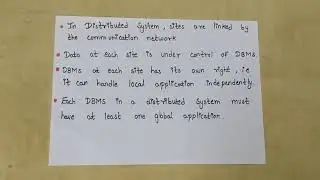 In Distributed System, sites are linked by
the communication network
Data at each site is under control of DBMS.
DBMS at each site has its own right, i.e
it can handle local application independently.
Each DBMS in a distributed system must
have at least one global application.